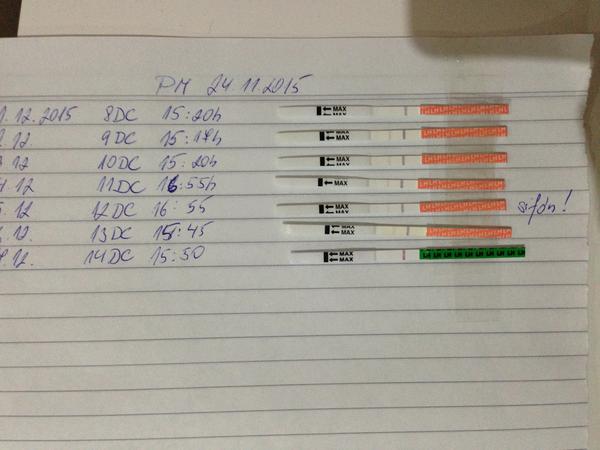 PM 24.11.2015
1.12.2015 8DC 15:20h MAX
.12. 9DC 15:17h MAX
12 10DC 15:20h MAX MAX
.12 11DC 16:55h MAX
.12 12DC 16:55 MAX MAX sifón!
13DC 15:45 MAX MAX
.12. 14DC 15:50 MAX MAX LH LH LH LH LH LH LH LH LH LH